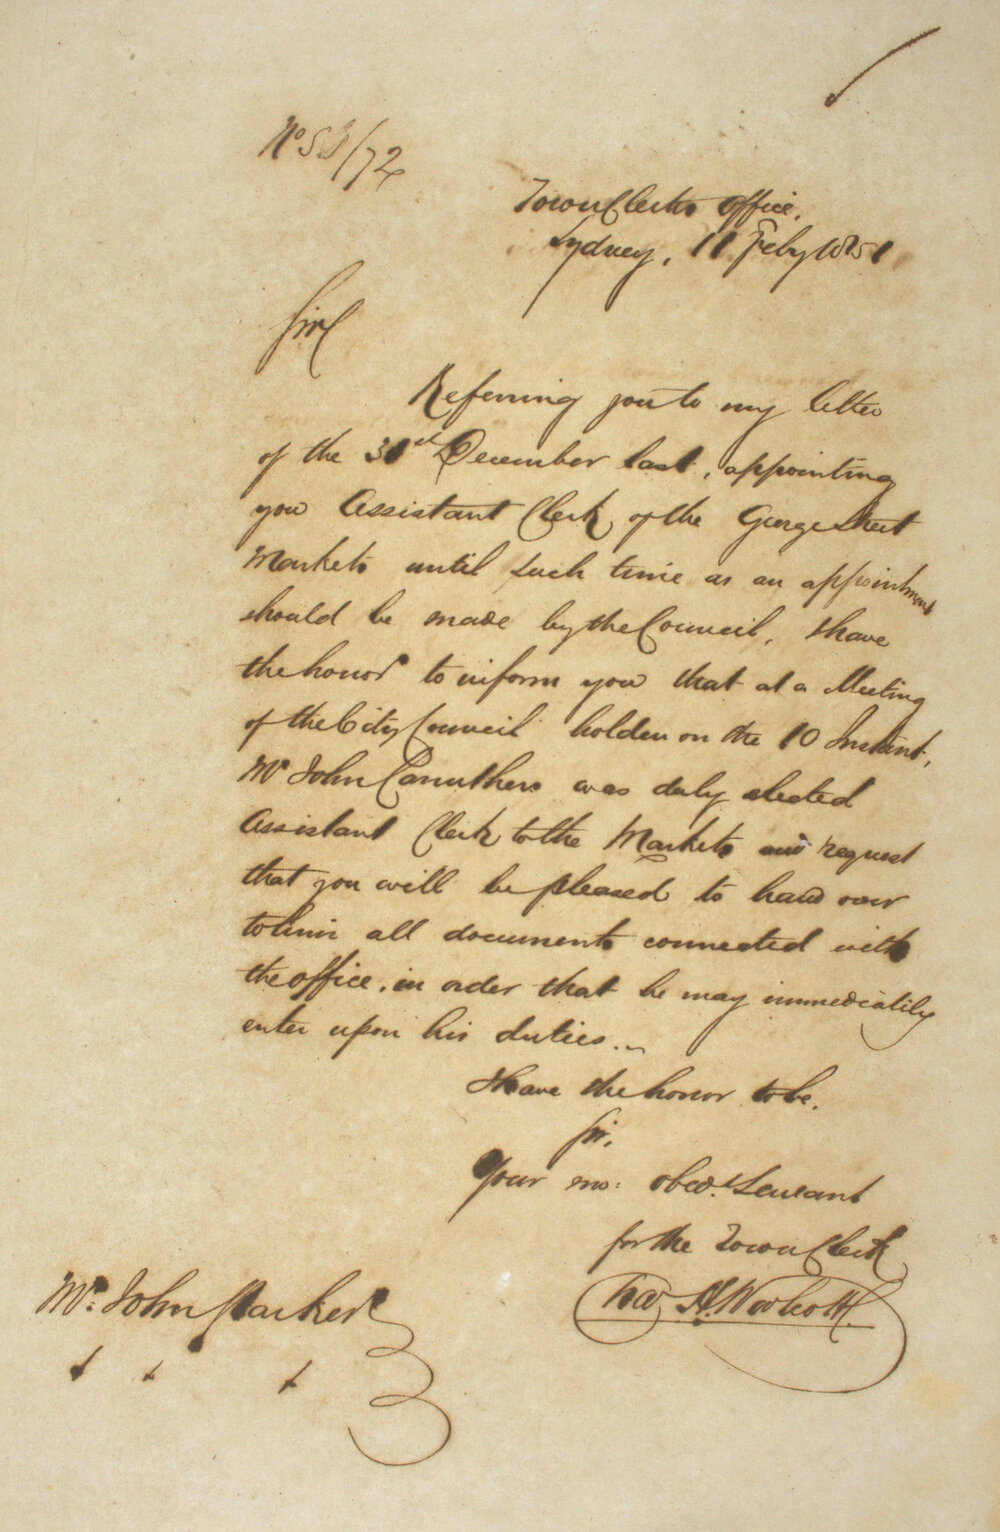 No 53/72
Town Clerks Office,
Sydney, 11 Feby 1851
Sir
Referring you to my letter
of the 31st December last, appointing
you Assistant Clerk of the George Street
Markets until such time as an appointment
should be made by the Council, I have
the honor to inform you that at a Meeting
of the City Council holden on the 10 Instant,
Mr John Carruthers was duly elected
Assistant Clerk to the Markets and request
that you will be pleased to hand over
to him all documents connected with
the office, in order that he may immediately
enter upon his duties.
I have the honor to be,
Sir,
Your mo: obed. Servant
for the Town Clerk
H. Woolcott.
Mr. John Parker